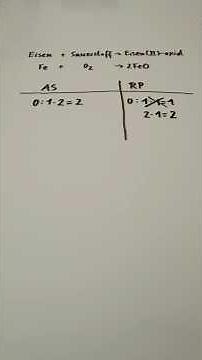 Eisen + Sauerstoff → Eisen(II)-oxid
Fe + O₂ → 2FeO
AS RP
O: 1·2=2 O: 1·1=1
2·1=2